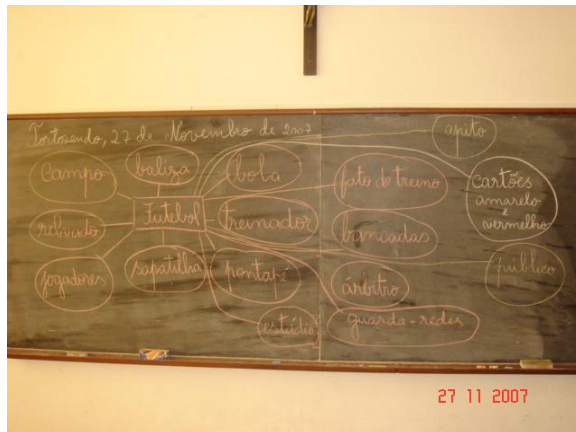 Tortosendo, 27 de Novembro de 2007
apito
campo
baliza
bola
fato de treino
cartões
amarelo
e
vermelho
relvado
Futebol
treinador
bancadas
jogadores
sapatilha
pontapé
árbitro
público
estúdio
guarda-redes
27 11 2007